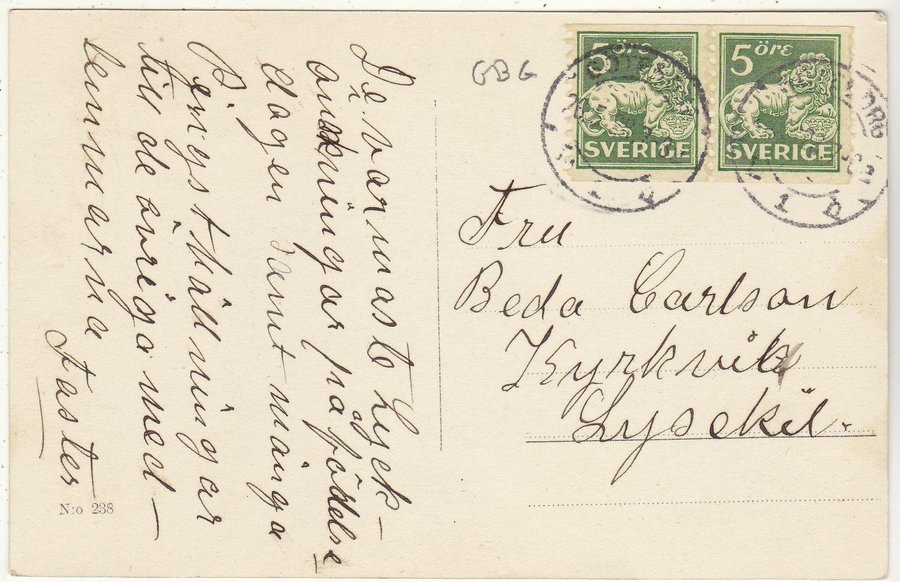 De varmaste Lyck-
önskningar på födelse
dagen samt många
Pingsthälsningar
till de övriga med-
lemmarna
Faster
N:o 238
GBG
5 ÖRE
SVERIGE
5 ÖRE
SVERIGE
Fru
Beda Carlson
Kyrkvik
Lysekil.